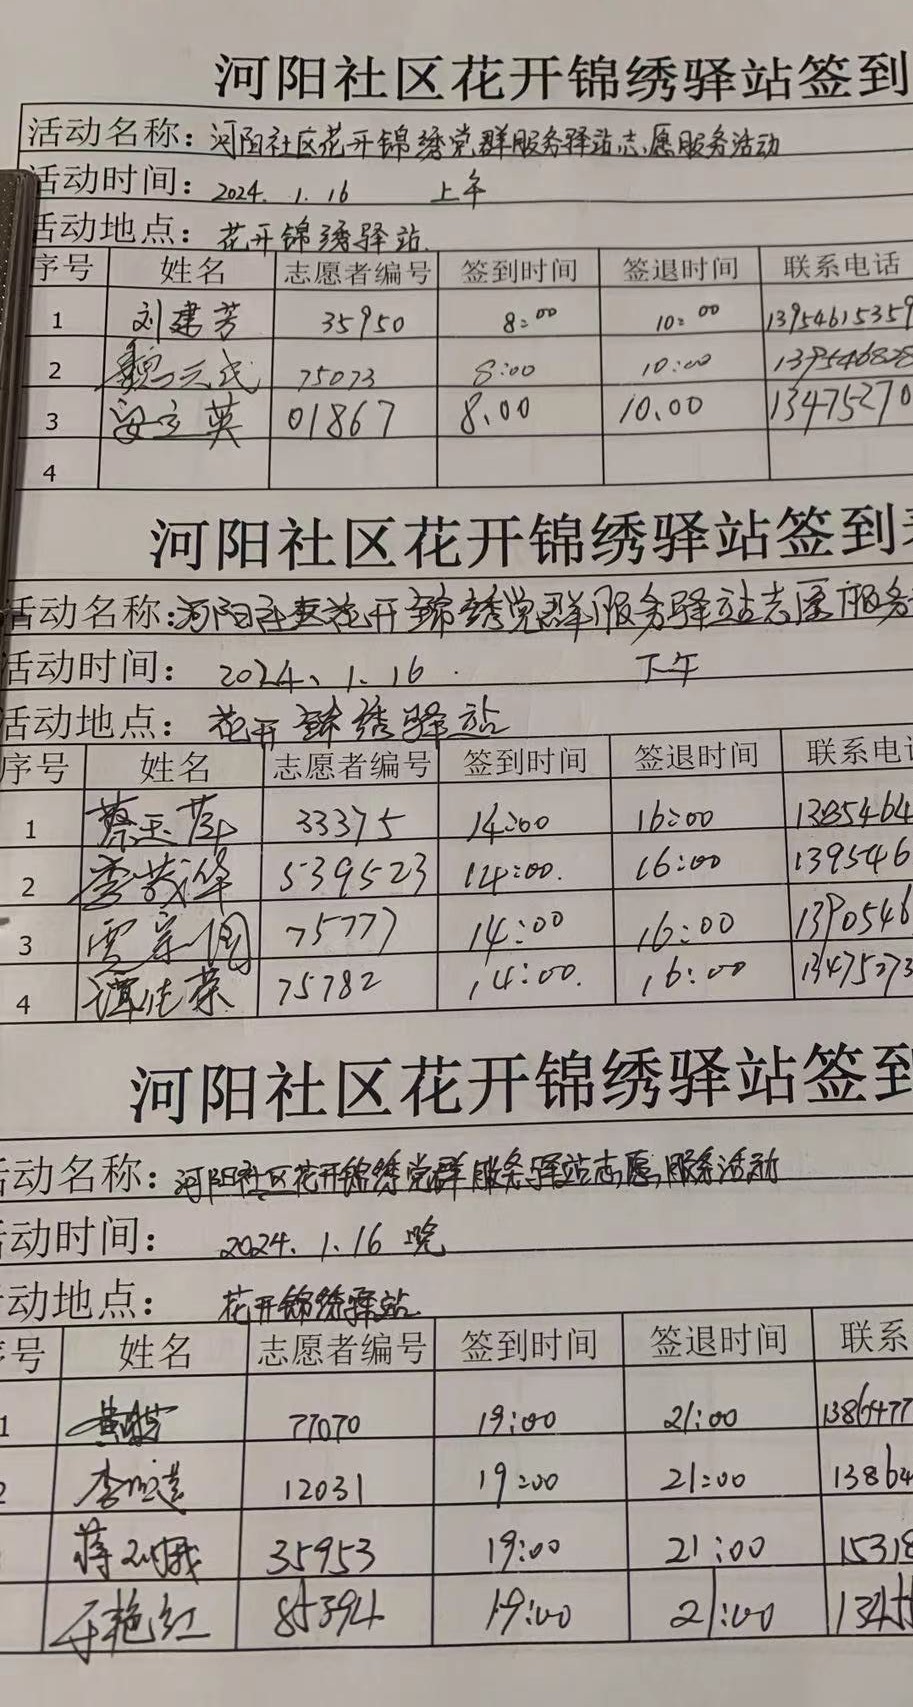 河阳社区花开锦绣驿站签到
活动名称：河阳社区花开锦绣党群服务驿站志愿服务活动
活动时间：2024.1.16 上午
活动地点：花开锦绣驿站
序号 姓名 志愿者编号 签到时间 签退时间 联系电话
1 刘建芳 35950 8:00 10:00 13954615359
2 魏元民 75073 8:00 10:00 139546828
3 安立英 01867 8.00 10.00 13475270
4
河阳社区花开锦绣驿站签到
活动名称：河阳社区花开锦绣党群服务驿站志愿服务
活动时间：2024、1.16 下午
活动地点：花开锦绣驿站
序号 姓名 志愿者编号 签到时间 签退时间 联系电话
1 蔡玉萍 33375 14:00 16:00 1385464
2 李茂华 539523 14:00. 16:00 139546
3 贾宗国 75777 14:00 16:00 1390546
4 谭佳荣 75782 14:00. 16:00 13475273
河阳社区花开锦绣驿站签到
活动名称：河阳社区花开锦绣党群服务驿站志愿服务活动
活动时间：2024.1.16 晚
活动地点：花开锦绣驿站
序号 姓名 志愿者编号 签到时间 签退时间 联系
1 77070 19:00 21:00 1386477
2 李 12031 19:00 21:00 13864
蒋 35953 19:00 21:00 15318
于艳红 85394 19:00 21:00 1345